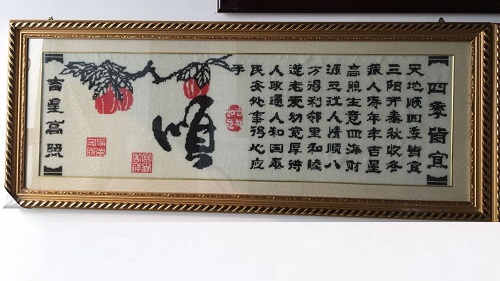 四季皆宜
天地顺四季皆宜
三阳开泰秋收冬
藏人寿年丰吉星
高照生意四海财
源五江人情顺八
方得利邻里和睦
遵老爱幼宽厚待
人政通人和国泰
民安处事得心应
手
順
吉星高照